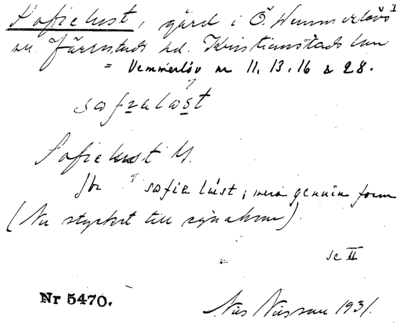 Sofielust, gård i Ö. Vemmerlövs I
sn. Järrestads hd. Kristianstads län
= Vemmerlöv nr 11, 13, 16 & 28.
sofıalöst
Sofielust H.
Jbr sofielust; mera genuin form
(Nu styckat till egnahem).
se II
Nr 5470.
Nils Nilsson 1931.